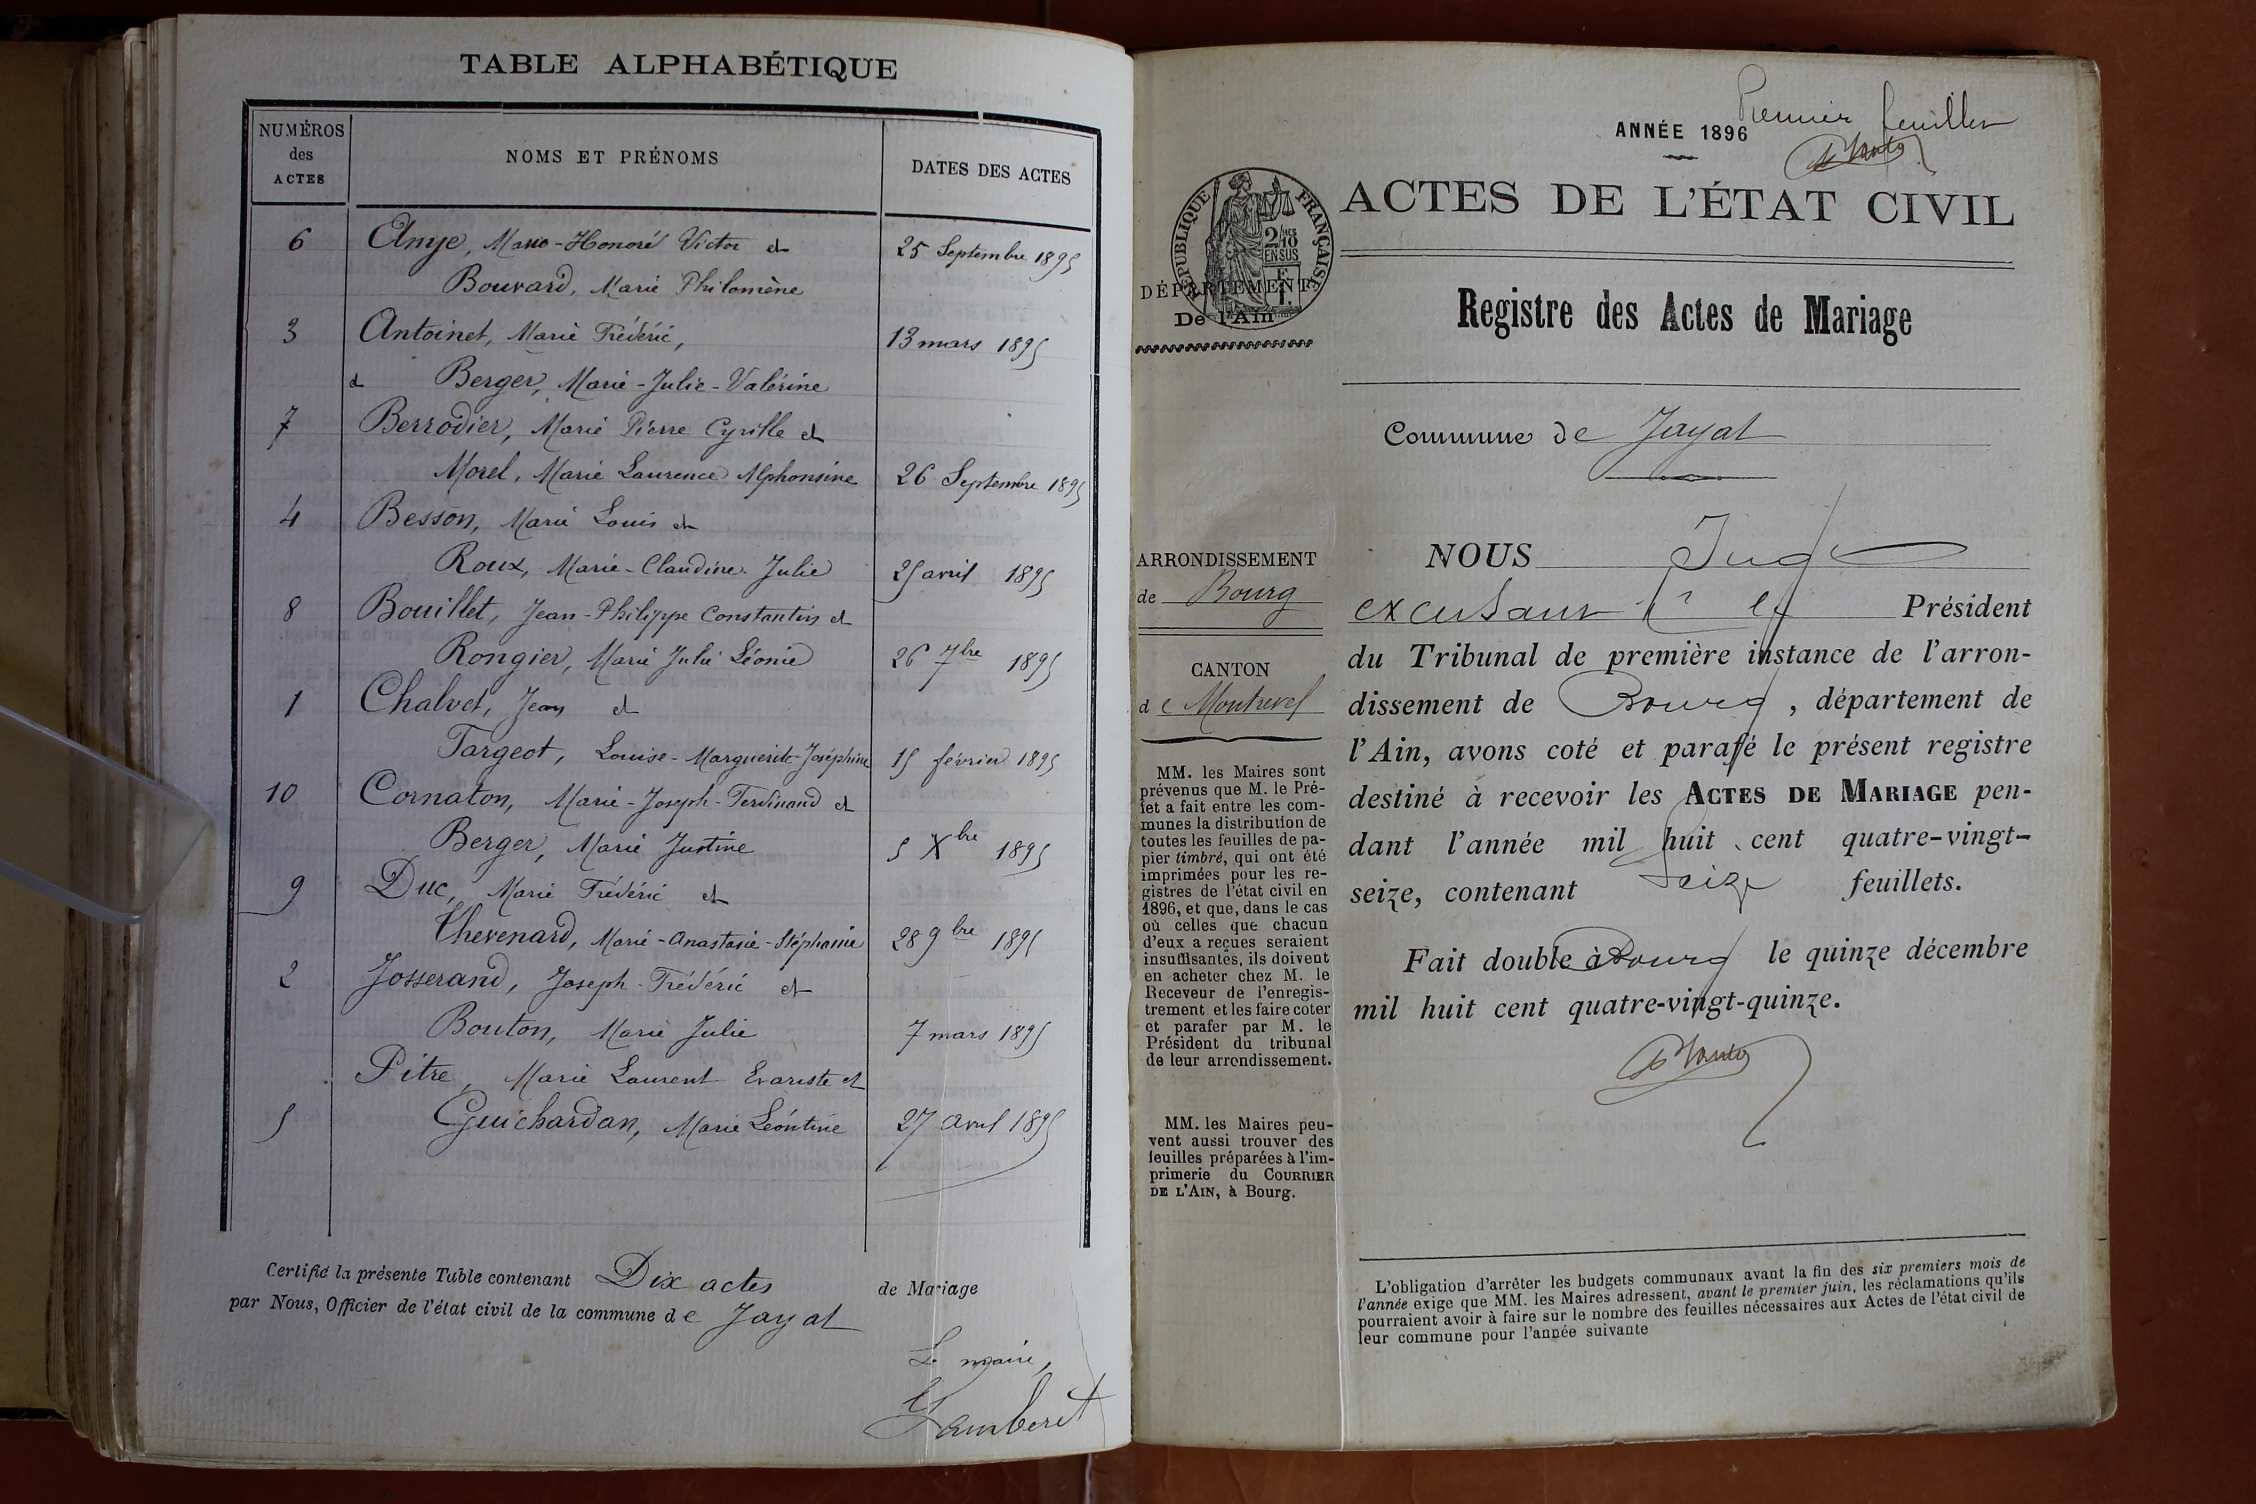 TABLE ALPHABÉTIQUE
NUMÉROS des ACTES
NOMS ET PRÉNOMS
DATES DES ACTES
6 Anye, Marie-Honoré Victor et 25 Septembre 1895
Bouvard, Marie Philomène
3 Antoinet, Marie Frédéric, 13 mars 1895
et Berger, Marie-Julie-Valérine
7 Berrodier, Marie Pierre Cyrille et
Morel, Marie Laurence Alphonsine 26 Septembre 1895
4 Besson, Marie Louis et
Roux, Marie-Claudine Julie 25 avril 1895
8 Bouillet, Jean-Philippe Constantin et
Rongier, Marie Julie Léonie 26 7bre 1895
1 Chalvet, Jean et
Targeot, Louise-Marguerite-Joséphine 15 février 1895
10 Cornaton, Marie-Joseph-Ferdinand et
Berger, Marie Justine 5 Xbre 1895
9 Duc, Marie Frédéric et
Thevenard, Marie-Anastasie-Stéphanie 28 9bre 1895
2 Josserand, Joseph-Frédéric et
Bouton, Marie Julie 7 mars 1895
Pitre, Marie Laurent Evariste et
5 Guichardan, Marie Léontine 27 avril 1895
Certifié la présente Table contenant Dix actes de Mariage
par Nous, Officier de l'état civil de la commune de Jayat
Le maire,
Lamberet
Premier feuillet
ANNÉE 1896
ACTES DE L'ÉTAT CIVIL
RÉPUBLIQUE FRANÇAISE
2/10 EN SUS
DÉPARTEMENT
De l'Ain
Registre des Actes de Mariage
Commune de Jayat
ARRONDISSEMENT
de Bourg
CANTON
de Montrevel
MM. les Maires sont
prévenus que M. le Pré-
fet a fait entre les com-
munes la distribution de
toutes les feuilles de pa-
pier timbré, qui ont été
imprimées pour les re-
gistres de l'état civil en
1896, et que, dans le cas
où celles que chacun
d'eux a reçues seraient
insuffisantes, ils doivent
en acheter chez M. le
Receveur de l'enregis-
trement et les faire coter
et parafer par M. le
Président du tribunal
de leur arrondissement.
MM. les Maires peu-
vent aussi trouver des
feuilles préparées à l'im-
primerie du COURRIER
DE L'AIN, à Bourg.
NOUS Juge
Président
du Tribunal de première instance de l'arron-
dissement de Bourg, département de
l'Ain, avons coté et parafé le présent registre
destiné à recevoir les ACTES DE MARIAGE pen-
dant l'année mil huit cent quatre-vingt-
seize, contenant seize feuillets.
Fait double à Bourg le quinze décembre
mil huit cent quatre-vingt-quinze.
L'obligation d'arrêter les budgets communaux avant la fin des six premiers mois de
l'année exige que MM. les Maires adressent, avant le premier juin, les réclamations qu'ils
pourraient avoir à faire sur le nombre des feuilles nécessaires aux Actes de l'état civil de
leur commune pour l'année suivante